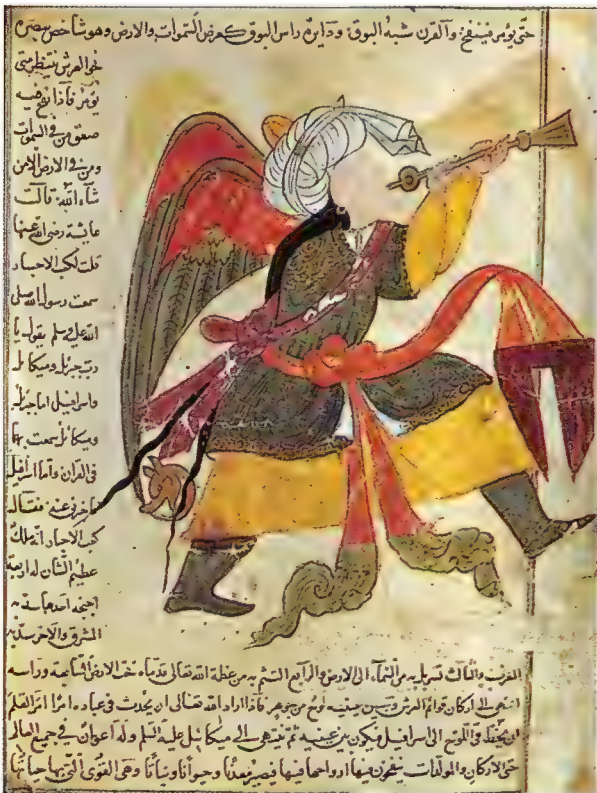 حتى يؤمر فينفخ والقرن شبه البوق ودايرة راس البوق كعرض السموات والارض وهو شاخص ببصره
نحو العرش ينتظر متى
يؤمر فاذا نفخ فيه
صعق من في السموات
ومن في الارض الا من
شآء الله قالت
عايشة رضى الله عنها
قلت لكعب الاحبار
سمعت رسول الله صلى
الله عليه وسلم يقول يا
رب جبرئل وميكائل
واسرافيل اما جبرئل
وميكائل سمعت بها
في القران واما اسرافيل
فاخبرني عنه فقال
كعب الاحبار انه ملك
عظيم الشان له اربعة
اجنحة احدها سد به
المشرق والاخر سد به
المغرب والثالث تسربل به من السمآء الى الارض والرابع التثم به من عظمة الله تعالى قدماه تحت الارض السابعة وراسه
انتهى الى اركان قوائم العرش وبين عينيه لوح من جوهر فاذا اراد الله تعالى ان يحدث في عباده امرا امر القلم
ان يخط في اللوح الى اسرافيل فيكون بين عينيه ثم ينتهى الى ميكائيل عليه السلم وله اعوان في جميع العالم
حتى الاركان والمولدات ينفخون فيها ارواحها فيصير معدنا وحيوانا ونباتا وهى القوى التي بها حياتها